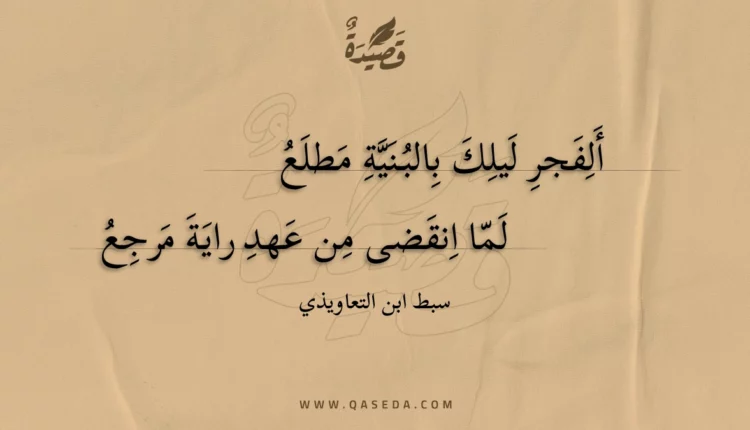 قَصِيدَةٌ
أَلِفَجرِ لَيلِكَ بِالبُنَيَّةِ مَطلَعُ
لَمّا اِنقَضى مِن عَهدِ رايَةَ مَرجِعُ
سبط ابن التعاويذي
WWW.QASEDA.COM